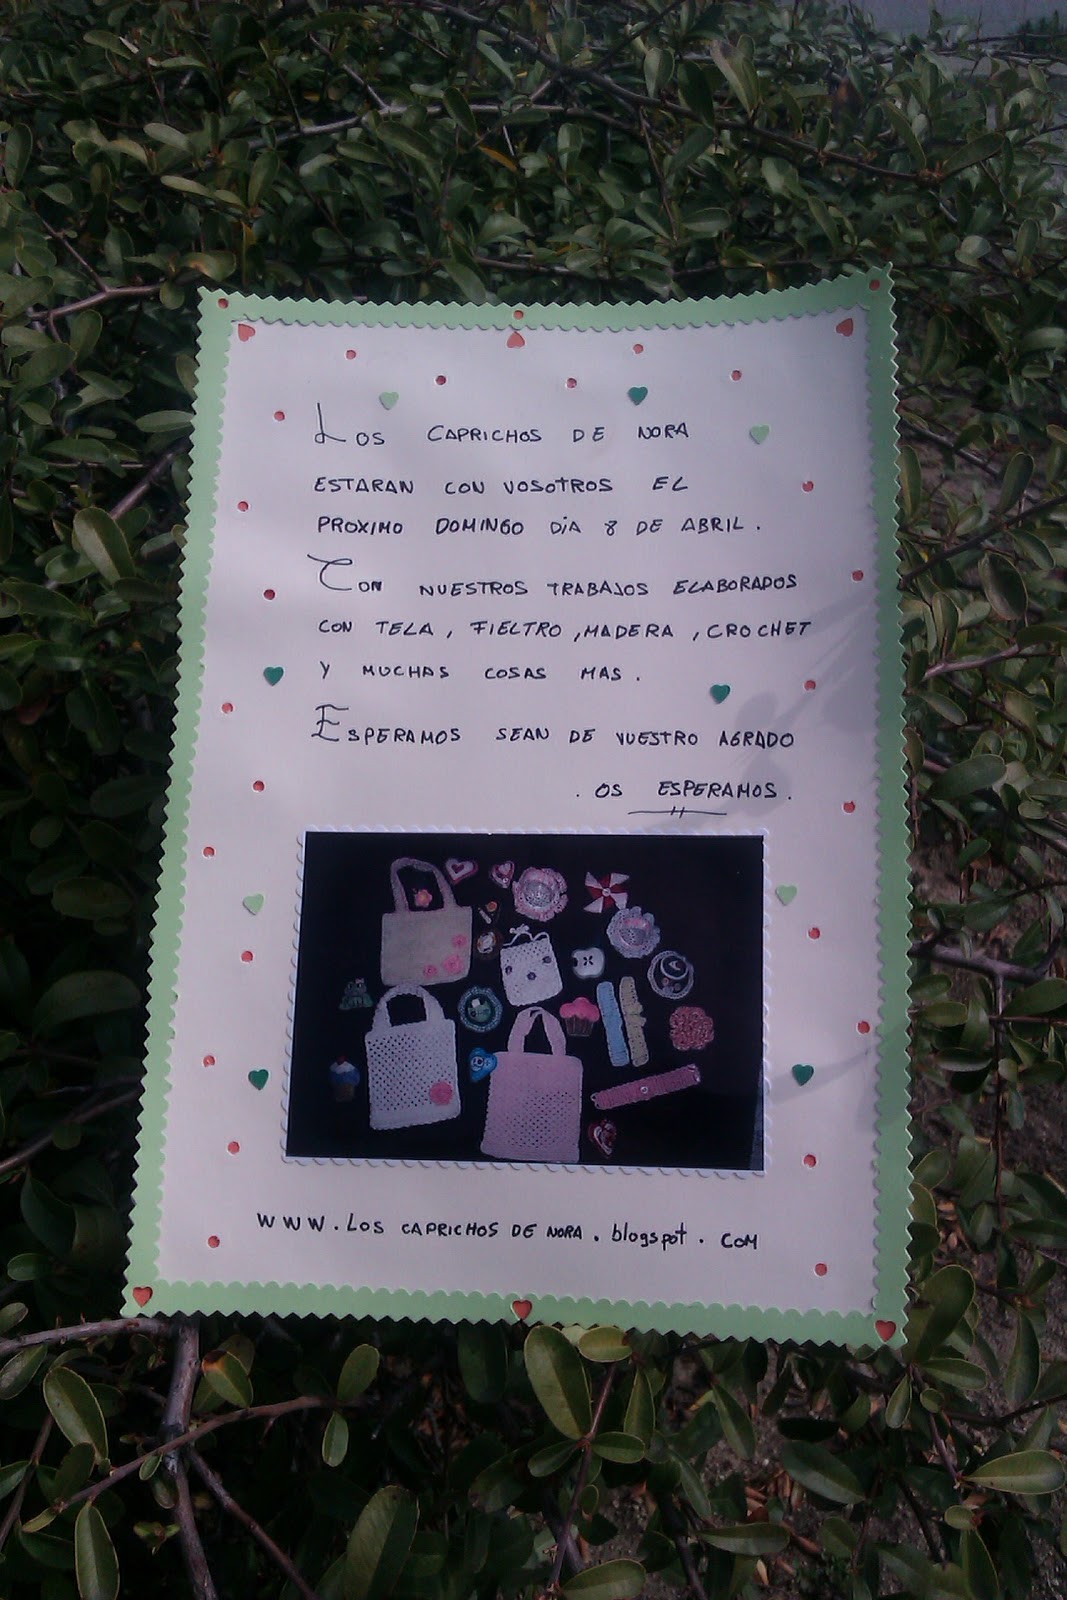 Los CAPRICHOS DE NORA
ESTARAN CON VOSOTROS EL
PROXIMO DOMINGO DiA 8 DE ABRIL.
CON NUESTROS TRABAJOS ELABORADOS
CON TELA, FIELTRO, MADERA, CROCHET
Y MUCHAS COSAS MAS.
ESPERAMOS SEAN DE VUESTRO AGRADO
. OS ESPERAMOS.
WWW. LOS CAPRICHOS DE NORA. blogspot. COM